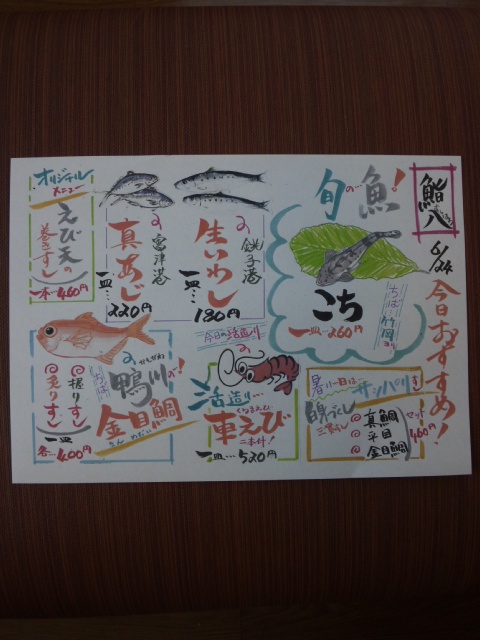 鮨八
6/24
今日おすすめ!
旬の…魚!
こち
一皿…260円
ちば…竹岡
銚子港の
生いわし
一皿…180円
富津港の
真あじ
一皿…220円
オリジナル
メニュー
えび天の
巻きずし
一本…460円
暑い日は
サッパリ
三貫
真鯛
平目
金目鯛
セット
460円
今日の活造り
活造り
車えび
くるまえび
二本付!
一皿…530円
ちば
鴨川の!
かもがわ
金目鯛
きんめだい
握りずし
炙りずし
一皿
各…400円